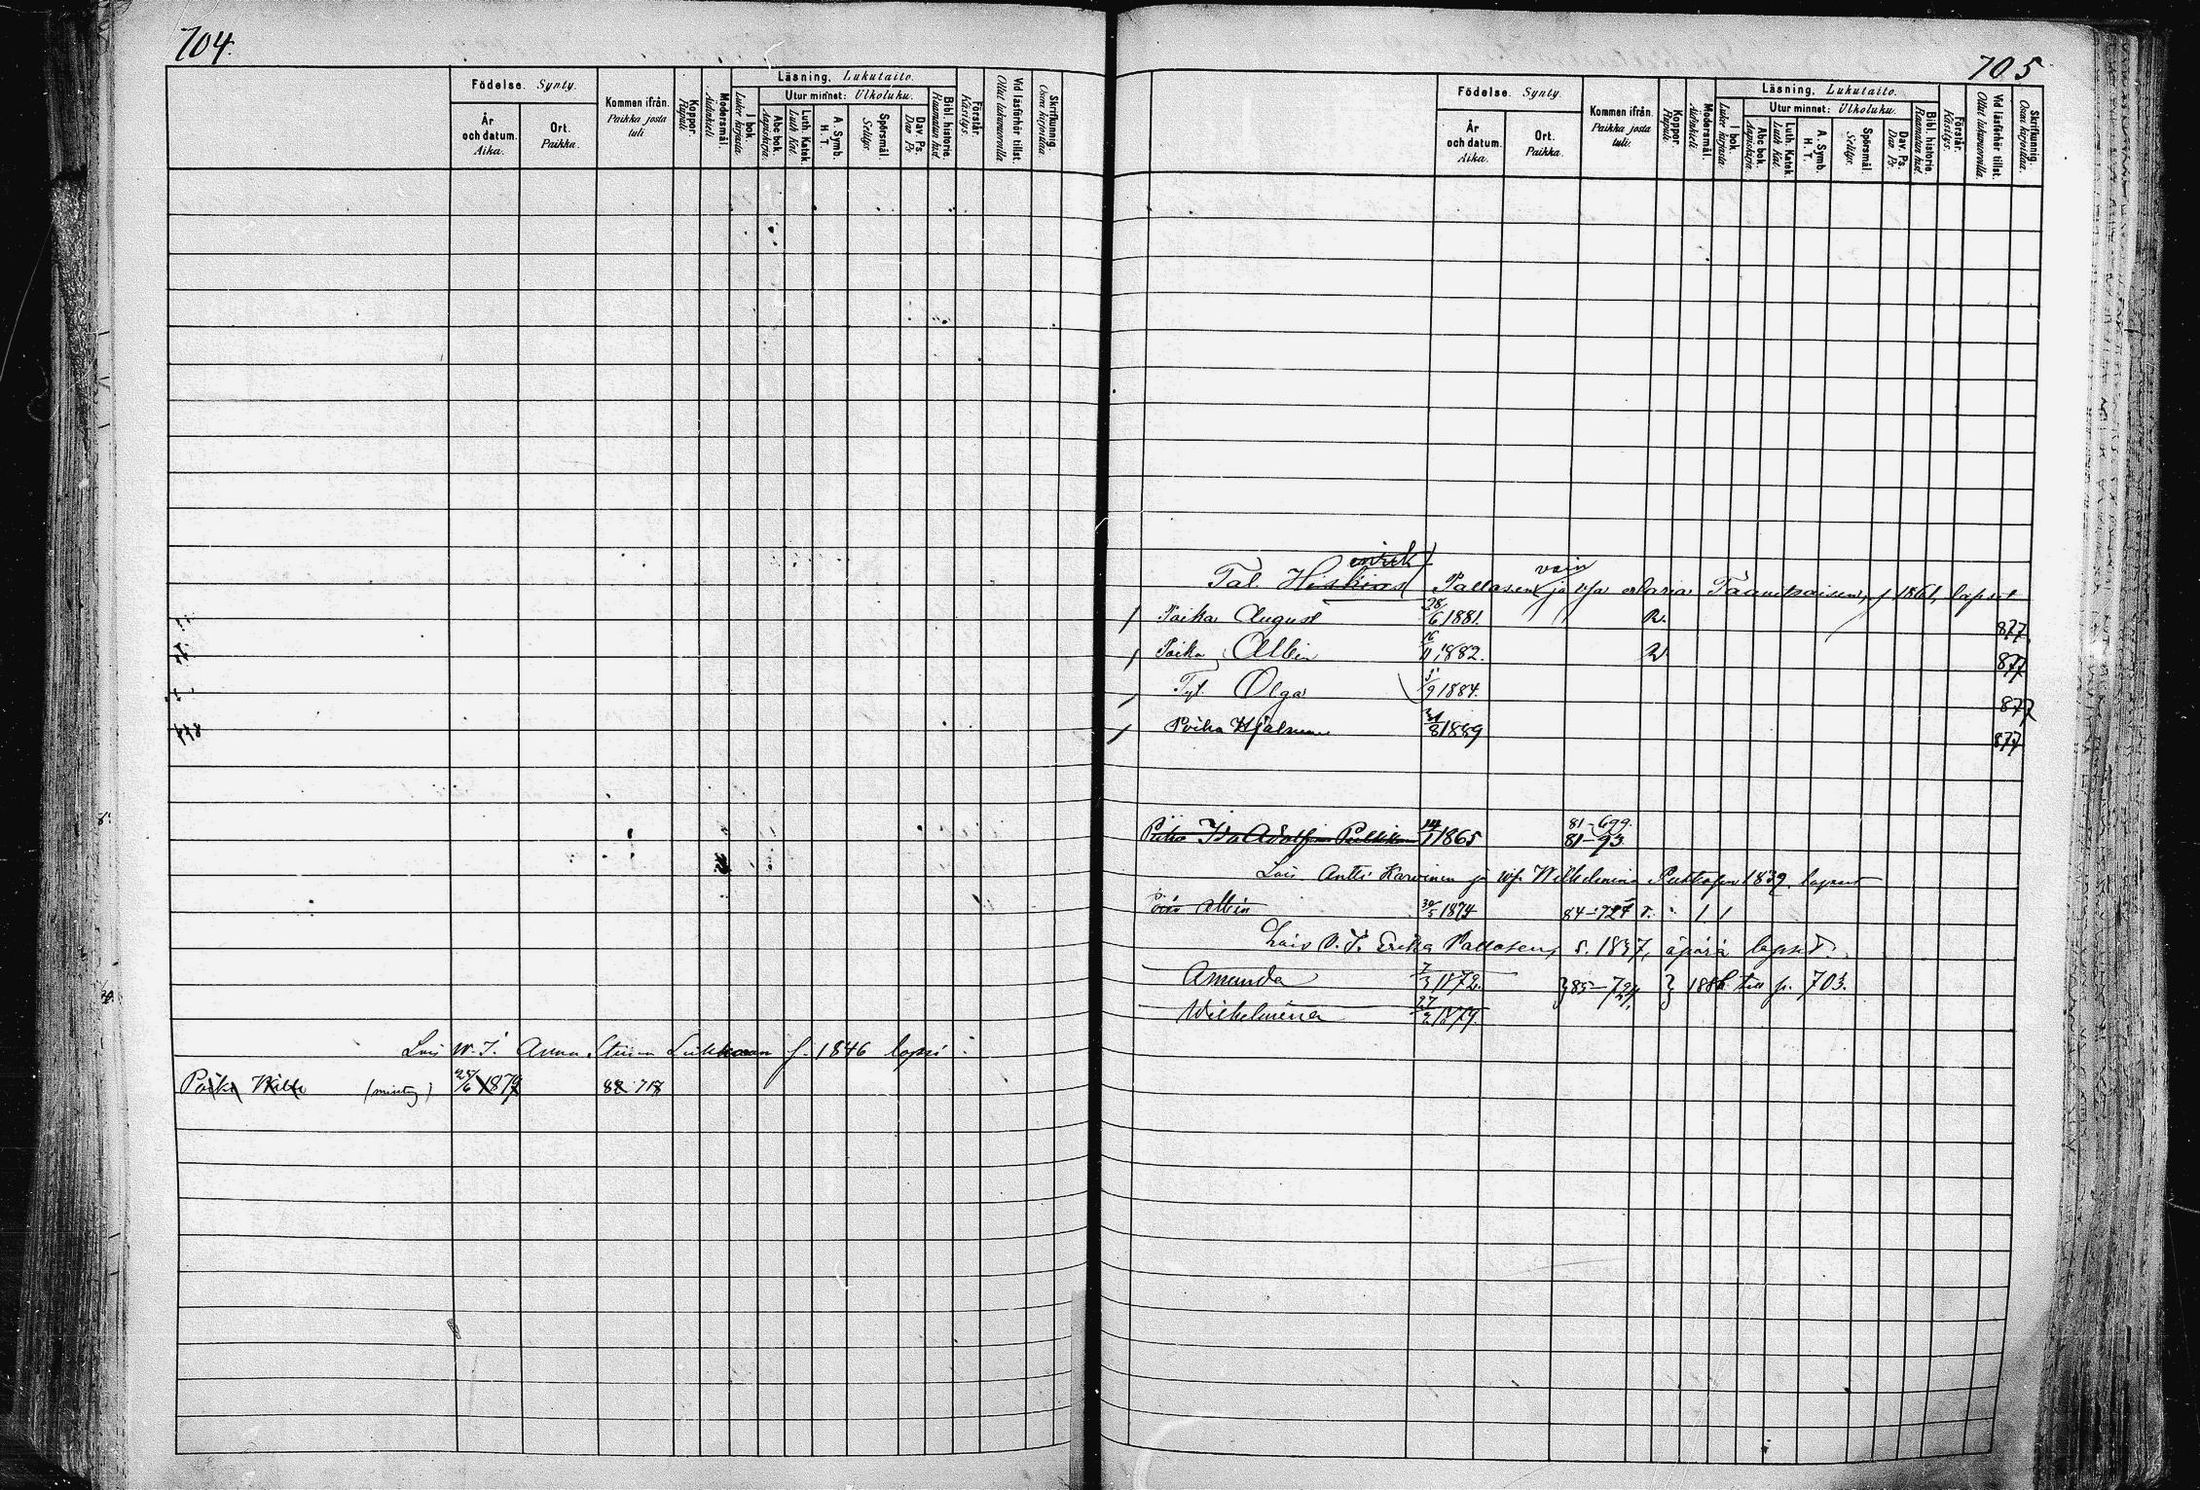 704.
Födelse. Synty.
År och datum. Aika.
Ort. Paikka.
Kommen ifrån. Paikka josta tuli
Koppor. Rupuli.
Modersmål. Äidinkieli
Läsning. Lukutaito.
I bok. Lukee kirjasta
Utur minnet: Ulkoluku.
Abc bok. Aapiskirja.
Luth. Katek. Luth Kat.
A. Symb. H. T.
Spörsmål Selitys.
Dav. Ps. Daw Ps
Bibl. historie. Raamatun hist.
Förstår. Käsitys.
Vid läsförhör tillst. Ollut lukuvuorolla
Skrifkunnig. Osaa kirjoittaa.
Anna f. 1846 lapsi
Poika Wille 25/6 1879 82 718
705
Födelse. Synty.
År och datum. Aika.
Ort. Paikka.
Kommen ifrån. Paikka josta tuli.
Koppor. Rupuli
Modersmål. Äidinkieli
Läsning. Lukutaito.
I bok. Lukee kirjasta
Utur minnet: Ulkoluku.
Abc bok. Aapiskirja.
Luth. Katek. Luth Kat.
A. Symb. H. T.
Spörsmål Selitys.
Dav. Ps. Daw Ps.
Bibl. historie. Raamatun hist.
Förstår. Käsitys.
Vid läsförhör tillst. Ollut lukuvuorolla.
Skrifkunnig. Osaa kirjoittaa.
vain
Tal. Hiskias Pallasen ja Maria f 1861, lapset
Poika August 28/6 1881. R. 877
Poika Albin 16/11 1882. R 877
Tyt. Olga 5/9 1884. 877
Poika Hjalmar 31/8 1889 877
81-699.
Piika Ida Adolfina 14/1 1865 81-93.
Lois Antti Karvinen ja Wilhelmina 1839, lapset
Albin 30/5 1874 84-727
Lois Erika Pallasen, s. 1837, äpärä lapset.
Amanda 7/3 1872. } 85-724 } 1886 till p. 703.
Wilhelmiina 27/2 1879.